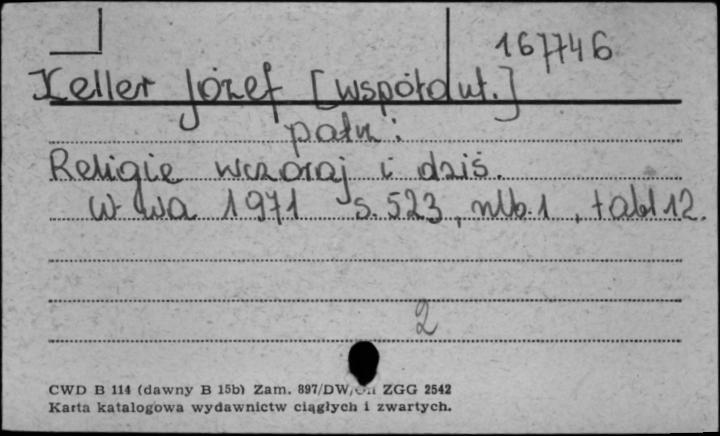 167746
Keller Józef [współaut.]
patrz:
Religie wczoraj i dziś.
W-wa 1971 s. 523, nlb. 1, tabl 12.
2
CWD B 114 (dawny B 15b) Zam. 897/DW ZGG 2542
Karta katalogowa wydawnictw ciągłych i zwartych.